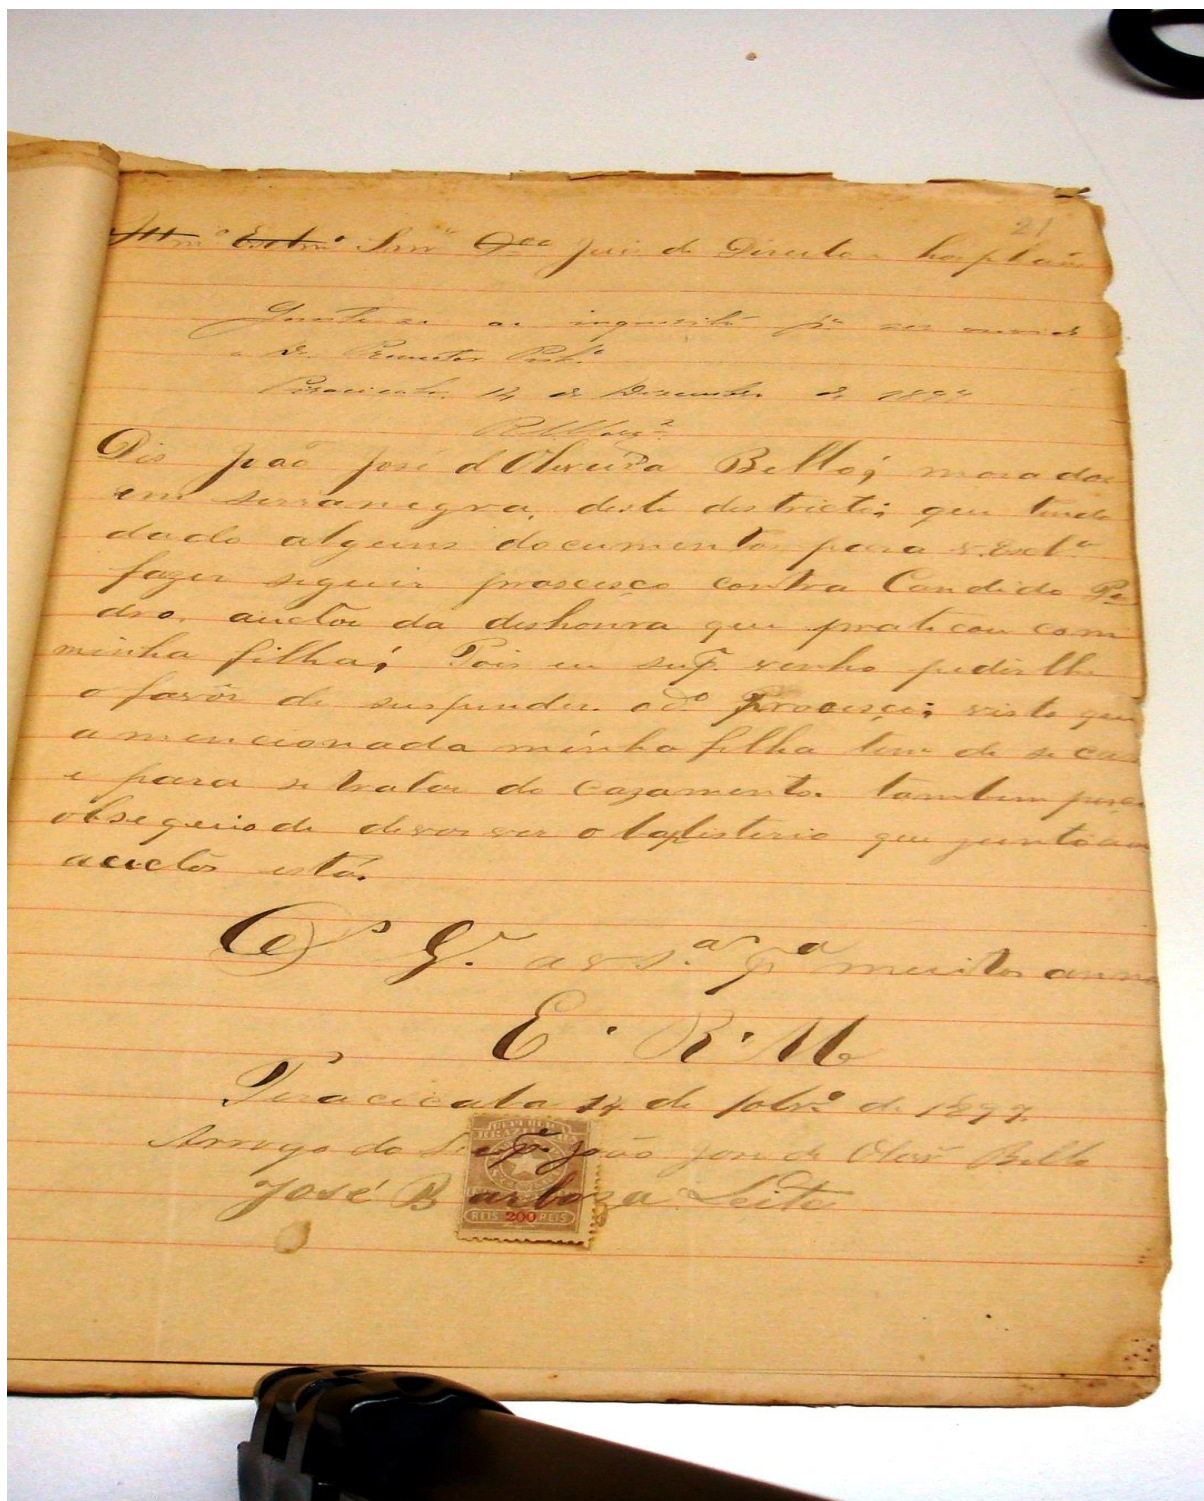 21
Illmº Exchmº Snrº Juiz de Direito
Junte-se ao inquerito pª ser ouvido
o Dr. Promotor Publº
Piracicaba, 14 de Dezembro de 1897
Dis João José d'Oliveira Bello; morador
em serranegra, deste destricto; que tendo
dado alguns documentos para v. Exclª
fazer seguir proscesço contra Candido Pe
dro, auctor da deshonra que praticou com
minha filha; Pois eu supe. venho pedir lhe
o favôr de suspender o dº Processço; visto que
a mencionada minha filha tem de se cas
e para se tratar do cazamento. tambem peço
obsequio de devolver o baptisterio que junto aos
auctos está.
Ds Ge. a v. s.ª pr. ª muitos annos
E. R. M
Piracicaba 14 de de 1897.
Arrogo do Supe João Jose de Olivª Bello
José Barboza Leite
REIS 200 REIS